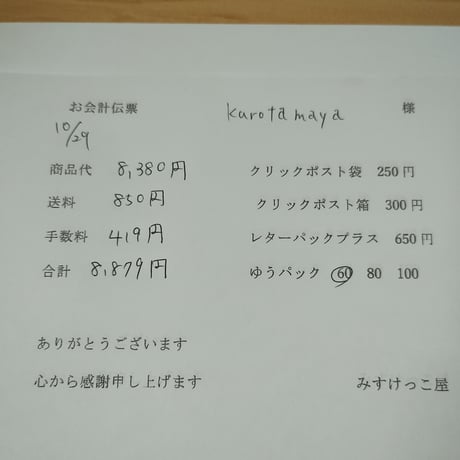 お会計伝票 kurotamaya 様
10/29
商品代 8,380円 クリックポスト袋 250円
送料 850円 クリックポスト箱 300円
手数料 419円 レターパックプラス 650円
合計 8,879円 ゆうパック 60 80 100
ありがとうございます
心から感謝申し上げます みすけっこ屋